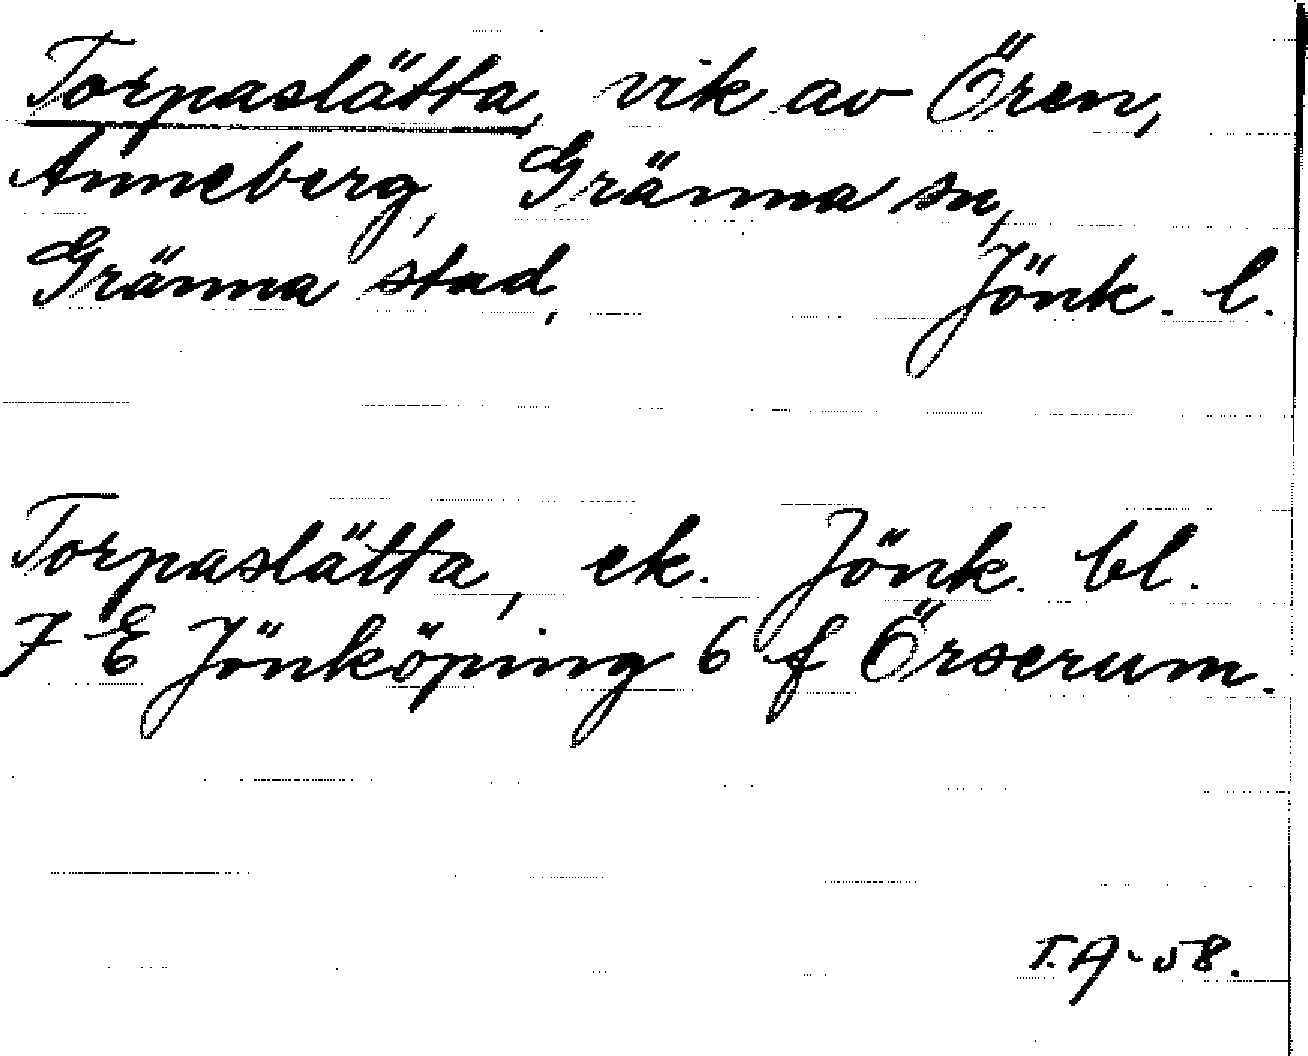 Torpaslätta, vik av Ören,
Anneberg, Gränna sn,
Gränna stad, Jönk. l.
Torpaslätta, ek. Jönk. bl.
7 E Jönköping 6 f Örserum.
T.A-58.